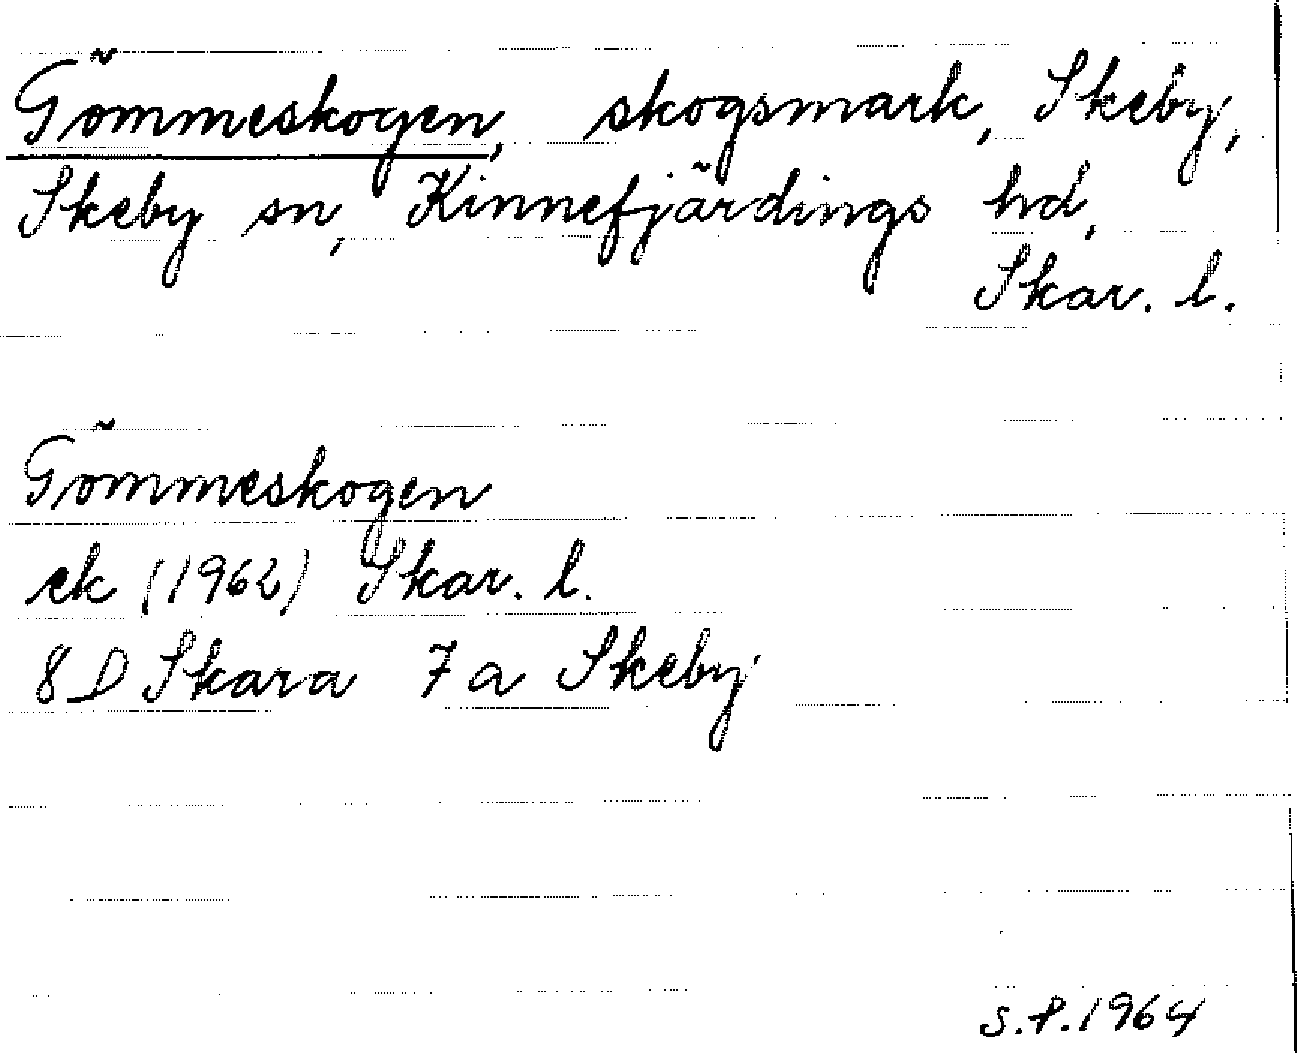 Gömmeskogen, skogsmark, Skeby,
Skeby sn, Kinnefjärdings hd,
Skar. l.
Gömmeskogen
ek (1962) Skar. l.
8 D Skara 7 a Skeby
S.P. 1964